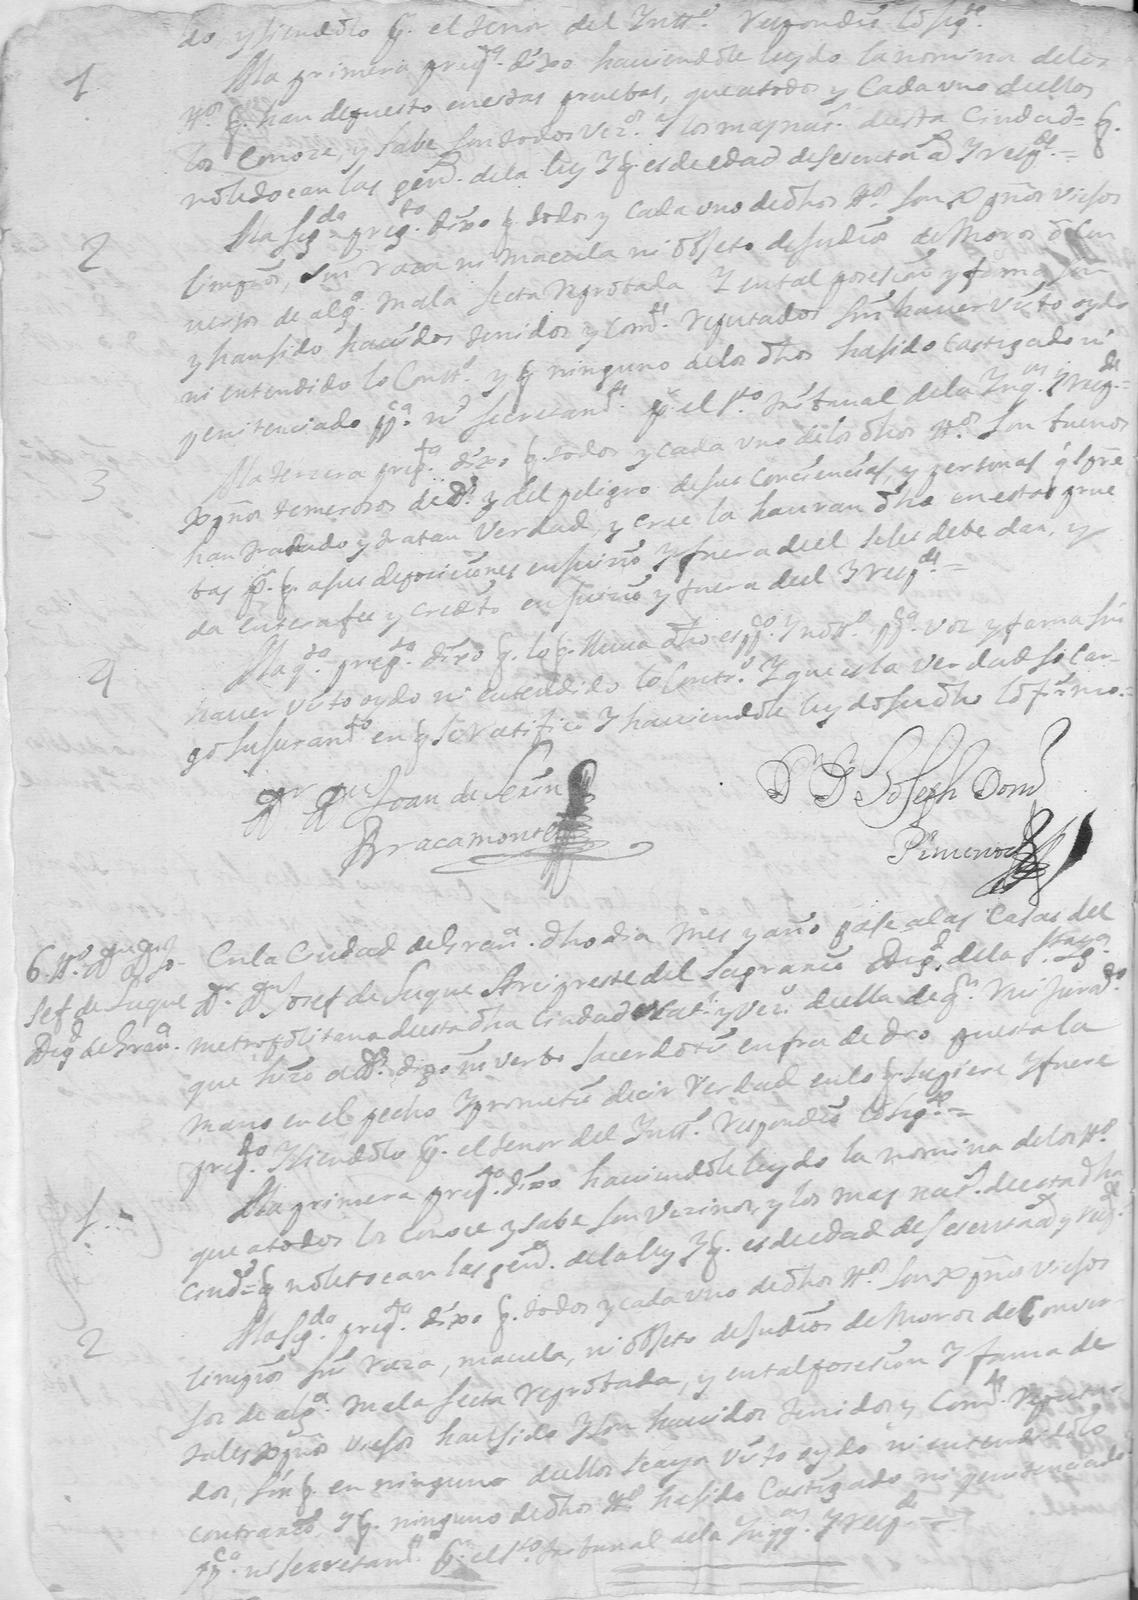 do, y siendolo p.r el tenor del Intt.o respondió lo sig.te
1 A la primera preg.ta dixo haviendole leydo la nomina de los
tt.os q. han depuesto en estas pruebas, que a todos y cada uno de ellos
los conoze, y sabe son todos vez.os y los mas nat.s de esta Ciudad = q.
no le tocan las gen.s de la ley y q. es de edad de sesenta a.s y resp.de =
2 A la seg.da preg.ta dixo q. todos y cada uno de dhos tt.os son xpños viejos
limpios, sin raza ni macula ni objeto de Judios de Moros o Con
versos de alg.a mala secta reprobada y en tal posesion y fama son
y han sido havidos tenidos y com.te reputados sin haver visto oydo
ni entendido lo Cont.o y q ninguno de los dhos ha sido castigado ni
penitenciado pp.ca ni secretam.te p.r el s.to tribunal de la Inq.on y resp.de =
3 A la terzera preg.ta dixo q. todos y cada uno de los dhos tt.os son buenos
xpños temerosos de D.s y del peligro de sus conciencias, y personas q siempre
han tratado y tratan verdad, y cree la hauran dho en estas prue
bas p.r q. a sus deposiciones en juicio y fuera de el se les debe dar, y
da entera fee y credito en juicio y fuera de el y resp.de =
4 A la q.ta preg.ta dixo q. lo q. lleva dho es pp.co y not.o pp.ca voz y fama sin
haver visto oydo ni entendido lo contr.o y que es la verdad so car-
go su juram.to en q se ratificó y haviendole leydo su dho lo firmo =
Joan de Leon
Bracamonte
D.r D. Joseph Dom.o
Pimentel
6. tt.o Jo-
sef de Luque
Dig.d de Gran.a
En la Ciudad de Gran.a dho dia mes y año pase a las casas del
Josef de Luque Arcipreste del Sagrario Dig.d de la S.ta Yg.a
metropolitana de esta dha Ciudad nat.l y vez.o de ella de q.n rezivi juram.to
que hizo a D.s dixo in verbo sacerdotis en fra de dro puesta la
mano en el pecho y prometió decir verdad en lo q. supiere y fuere
preg.do y siendolo p.r el tenor del Intt.o respondió lo sig.te =
1. A la primera preg.ta dixo haviendole leydo la nomina de los tt.os
que a todos los conoce y sabe son vezinos, y los mas nat.s de esta dha
Ciud.d = q no le tocan las gen.s de la ley y q. es de edad de sesenta a.s y resp.de
2 A la seg.da preg.ta dixo q. todos y cada uno de dhos tt.os son xpños viejos
limpios sin raza, macula, ni objeto de Judios de Moros de Conver
sos de alg.a mala secta reprobada, y en tal posesion y fama de
tales xpños viejos han sido y son havidos tenidos y com.te reputa-
dos, sin q. en ninguno de ellos se aya visto oydo ni entendido lo
contrario, y q. ninguno de dhos tt.os ha sido castigado ni penitenciado
pp.ca ni secretam.te p.r el s.to tribunal de la Inqq.on y resp.de =